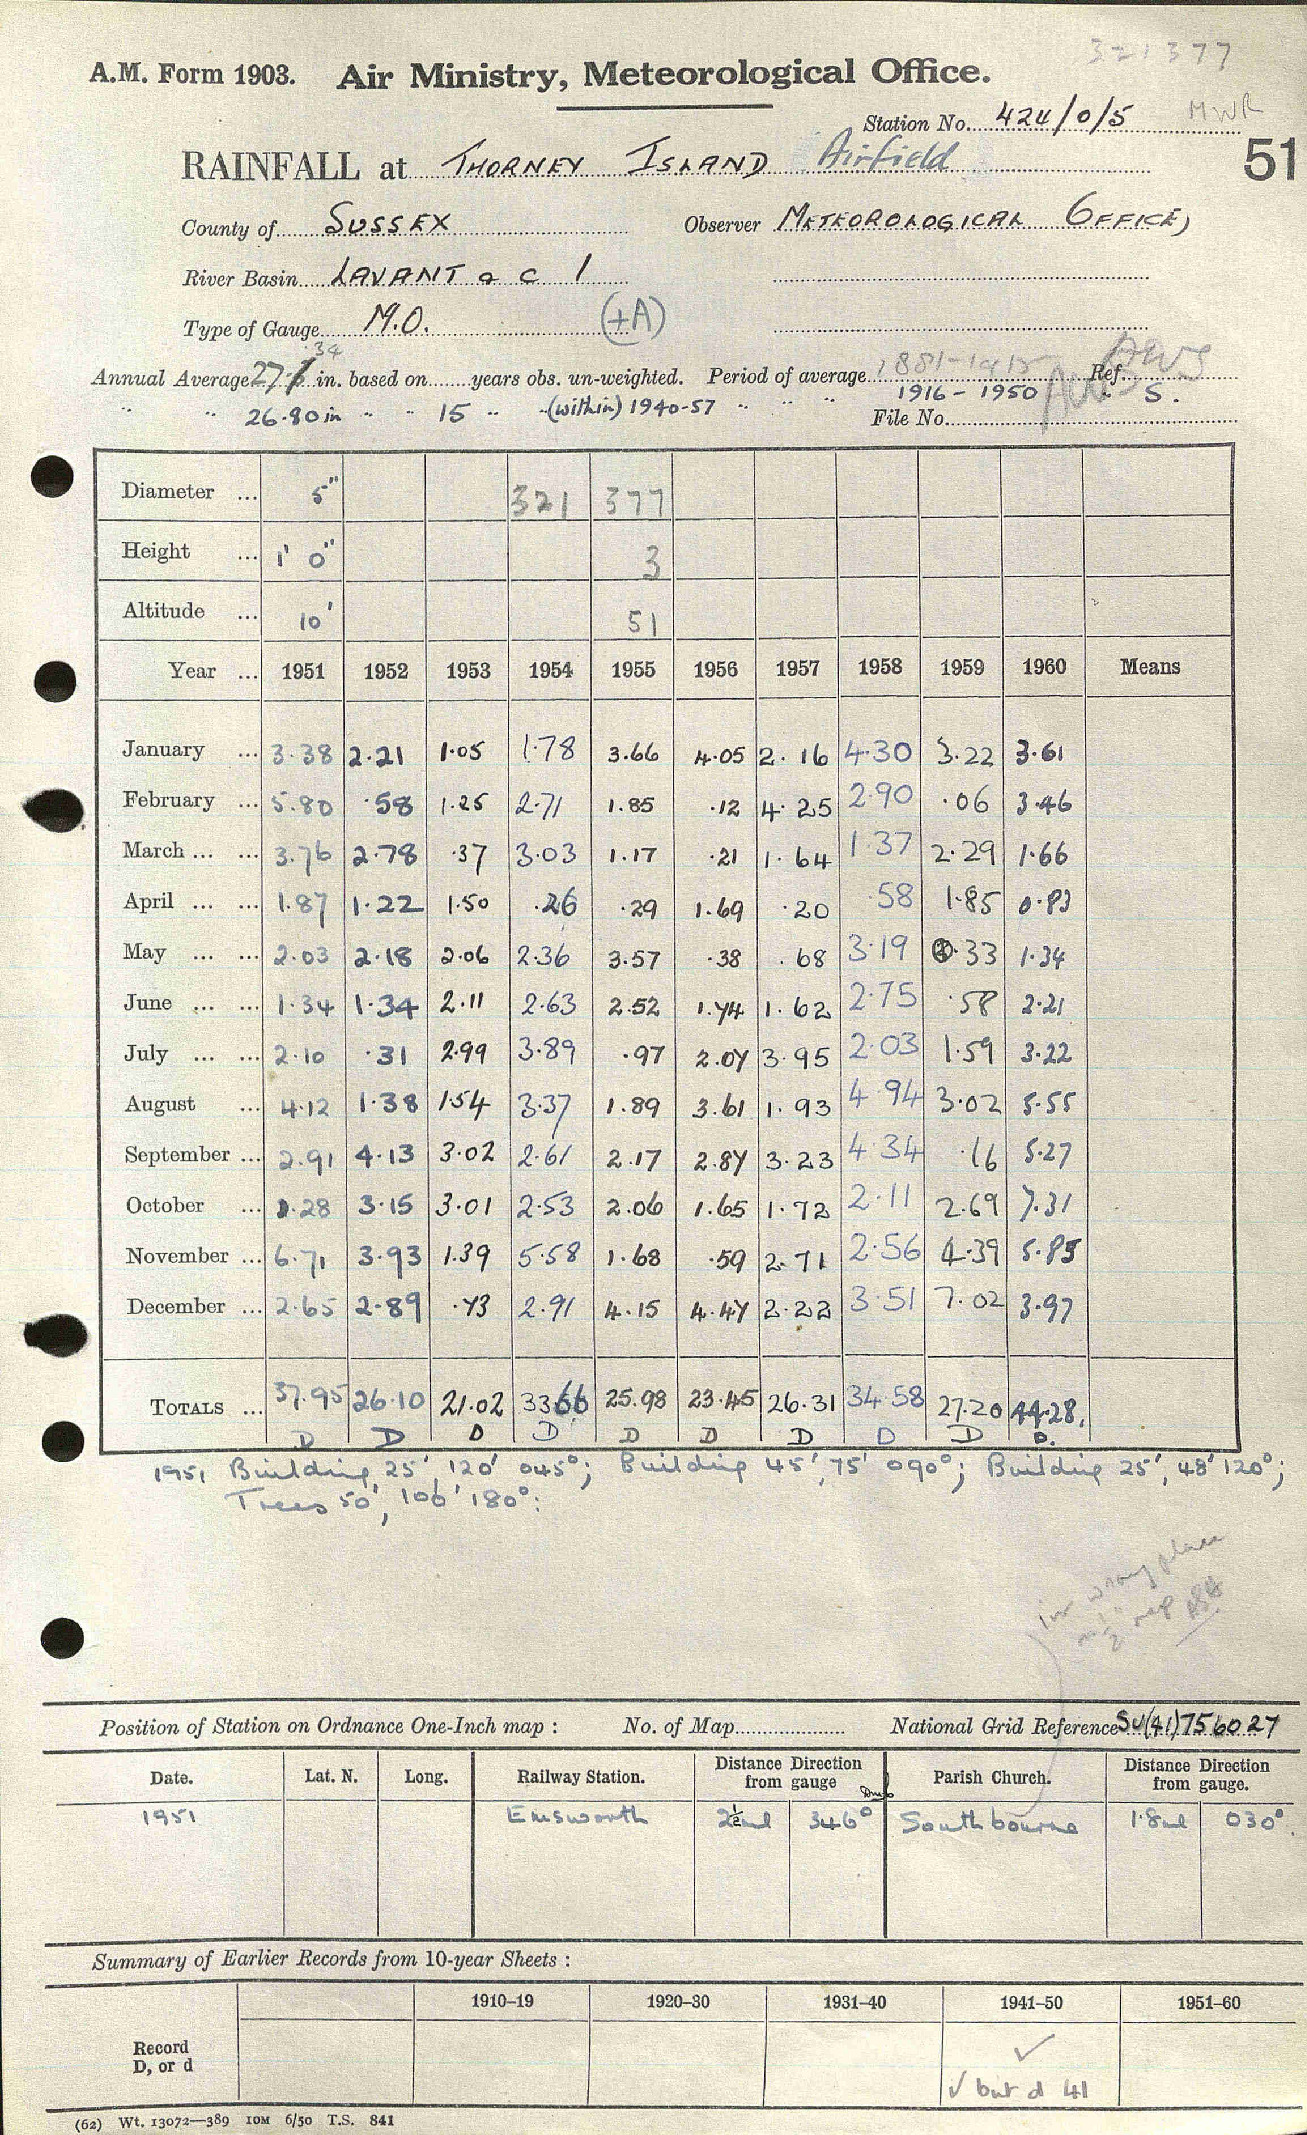 321377
A.M. Form 1903. Air Ministry, Meteorological Office.
Station No. 424/0/5 MWR
51
RAINFALL at THORNEY ISLAND Airfield
County of SUSSEX Observer METEOROLOGICAL OFFICE,
River Basin LAVANT & C 1
Type of Gauge M.O. (+A)
Annual Average 27. 34 in. based on years obs. un-weighted. Period of average 1881-1915 Ref.
" " 26.80 in " " 15 " (within) 1940-57 " " " 1916 - 1950 S.
File No.
Diameter ... 5" 321 377
Height ... 1' 0" 3
Altitude ... 10' 51
Year ... 1951 1952 1953 1954 1955 1956 1957 1958 1959 1960 Means
January ... 3.38 2.21 1.05 1.78 3.66 4.05 2.16 4.30 3.22 3.61
February ... 5.80 .58 1.25 2.71 1.85 .12 4.25 2.90 .06 3.46
March ... ... 3.76 2.78 .37 3.03 1.17 .21 1.64 1.37 2.29 1.66
April ... ... 1.87 1.22 1.50 .26 .29 1.69 .20 58 1.85 0.83
May ... ... 2.03 2.18 2.06 2.36 3.57 .38 .68 3.19 .33 1.34
June ... ... 1.34 1.34 2.11 2.63 2.52 1.74 1.62 2.75 .58 2.21
July ... ... 2.10 .31 2.99 3.89 .97 2.07 3.95 2.03 1.59 3.22
August ... 4.12 1.38 1.54 3.37 1.89 3.61 1.93 4.94 3.02 5.55
September ... 2.91 4.13 3.02 2.61 2.17 2.87 3.23 4.34 .16 5.27
October ... 1.28 3.15 3.01 2.53 2.06 1.65 1.72 2.11 2.69 7.31
November ... 6.71 3.93 1.39 5.58 1.68 .59 2.71 2.56 4.39 5.85
December ... 2.65 2.89 .73 2.91 4.15 4.47 2.22 3.51 7.02 3.97
TOTALS ... 37.95 26.10 21.02 33.66 25.98 23.45 26.31 34.58 27.20 44.28
D D D D D D D D D D.
1951 Building 25', 120' 045°; Building 45', 75' 090°; Building 25', 48' 120°;
Trees 50', 106' 180°:
in wrong place
on ½" map
Position of Station on Ordnance One-Inch map : No. of Map National Grid Reference SU(41)756027
Date. Lat. N. Long. Railway Station. Distance Direction from gauge Parish Church. Distance Direction from gauge.
1951 Emsworth 2½ml 346° Southbourne 1.8ml 030°.
Summary of Earlier Records from 10-year Sheets :
1910–19 1920–30 1931–40 1941–50 1951–60
Record D, or d ✓
✓ but d 41
(62) Wt. 13072—389 10M 6/50 T.S. 841